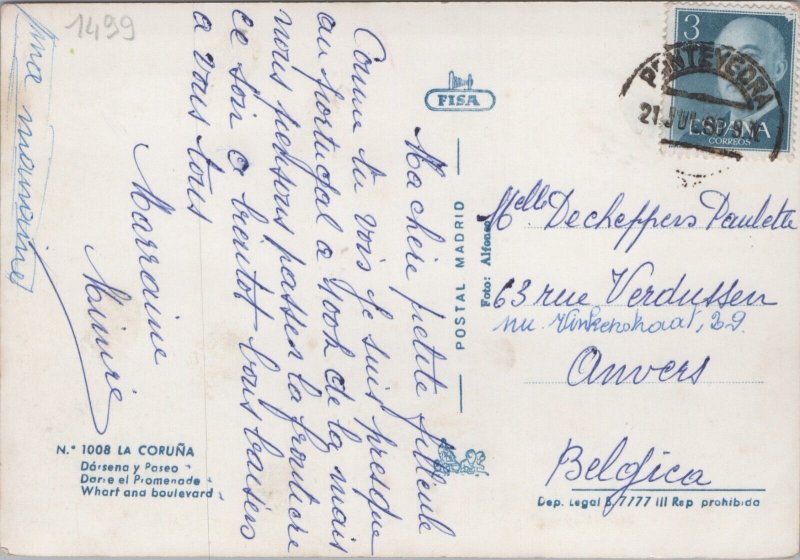 1499
Ma chère petite filleule
Comme tu vois je suis presque
au Portugal a 400k de la mais
nous pensons passer la frontière
ce soir a bientot bons baisers
a vous tous
Marraine
Mimire
FISA
POSTAL MADRID
Foto: Alfonso
3
PONTEVEDRA
21 JUL
ESPAÑA
CORREOS
Melle Decheppers Paulette
63 rue Verdussen
nu. Vinkenstraat, 29.
Anvers
Belgica
N.° 1008 LA CORUÑA
Dársena y Paseo
Darse et Promenade
Wharf and boulevard
Dep. Legal B. 7777 III Rep prohibida